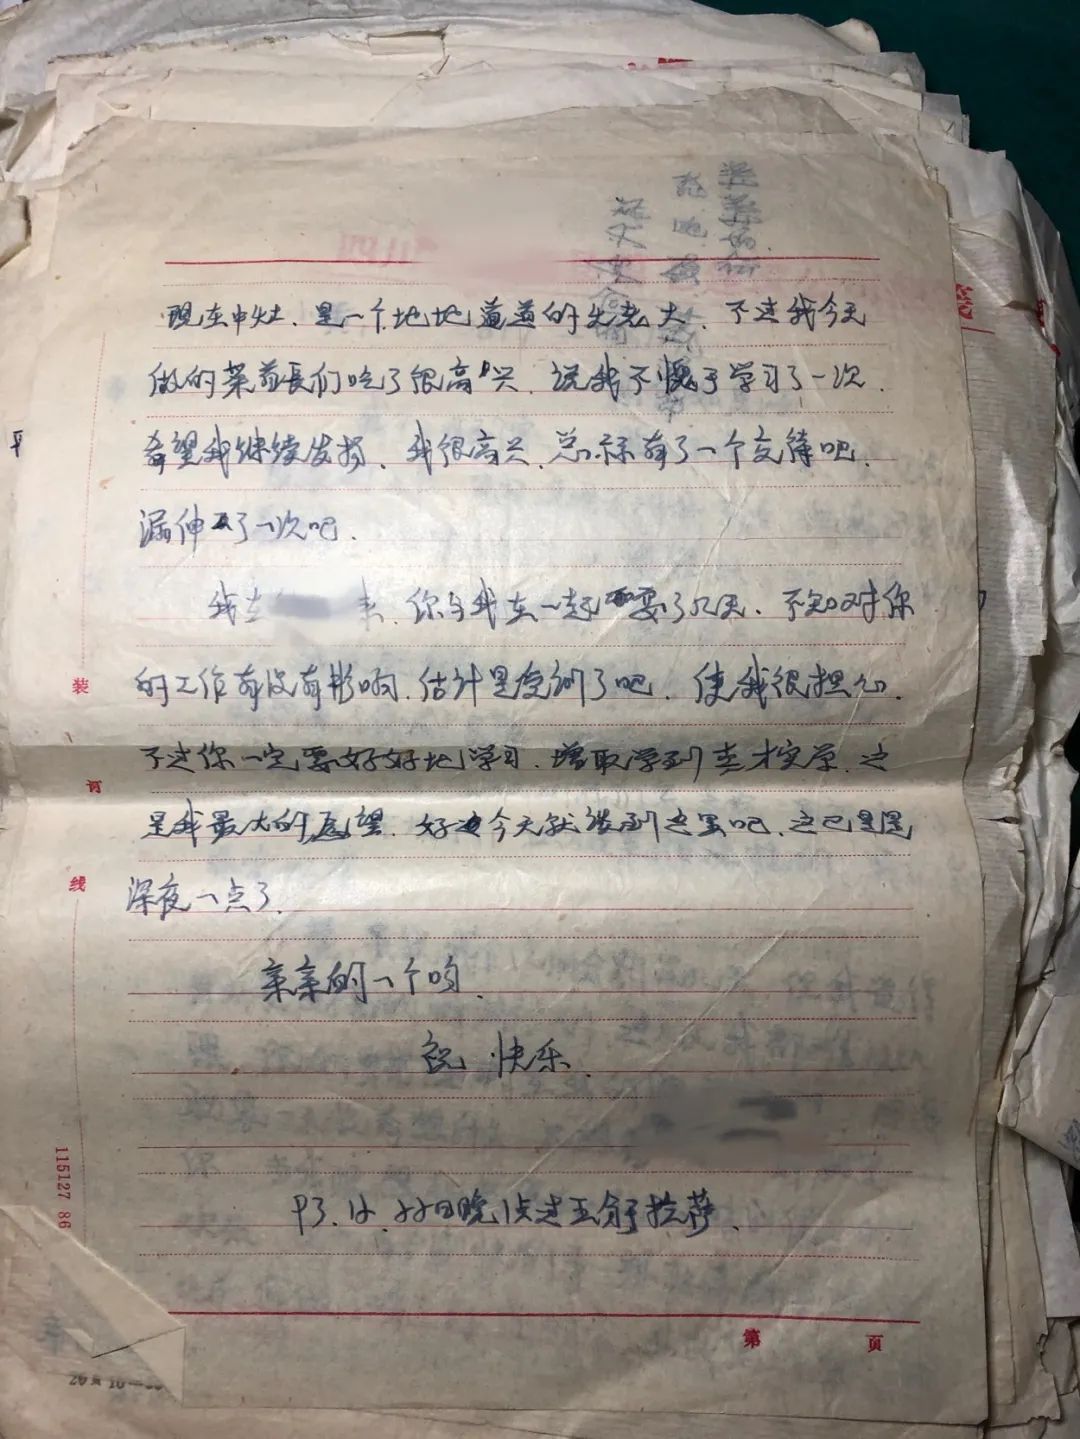 现在中灶、是一个地地道道的先老大、不过我今天
做的菜首长们吃了很高兴、说我不愧于学习了一次、
希望我继续发扬、我很高兴、总标有了一个交待吧、
漏伸了一次吧、
我去 来、你与我在一起耍了几天、不知对你
的工作有没有影响、估计是受训了吧、使我很担心、
不过你一定要好好地学习、增取学到真才实学、这
是我最大的愿望、好吧今天就谈到这里吧、这已是是
深夜一点了、
亲亲的一个吻、
祝 快乐、
93.12.22日晚1点过五分于拉萨、
装
订
线
115127 86
第 页